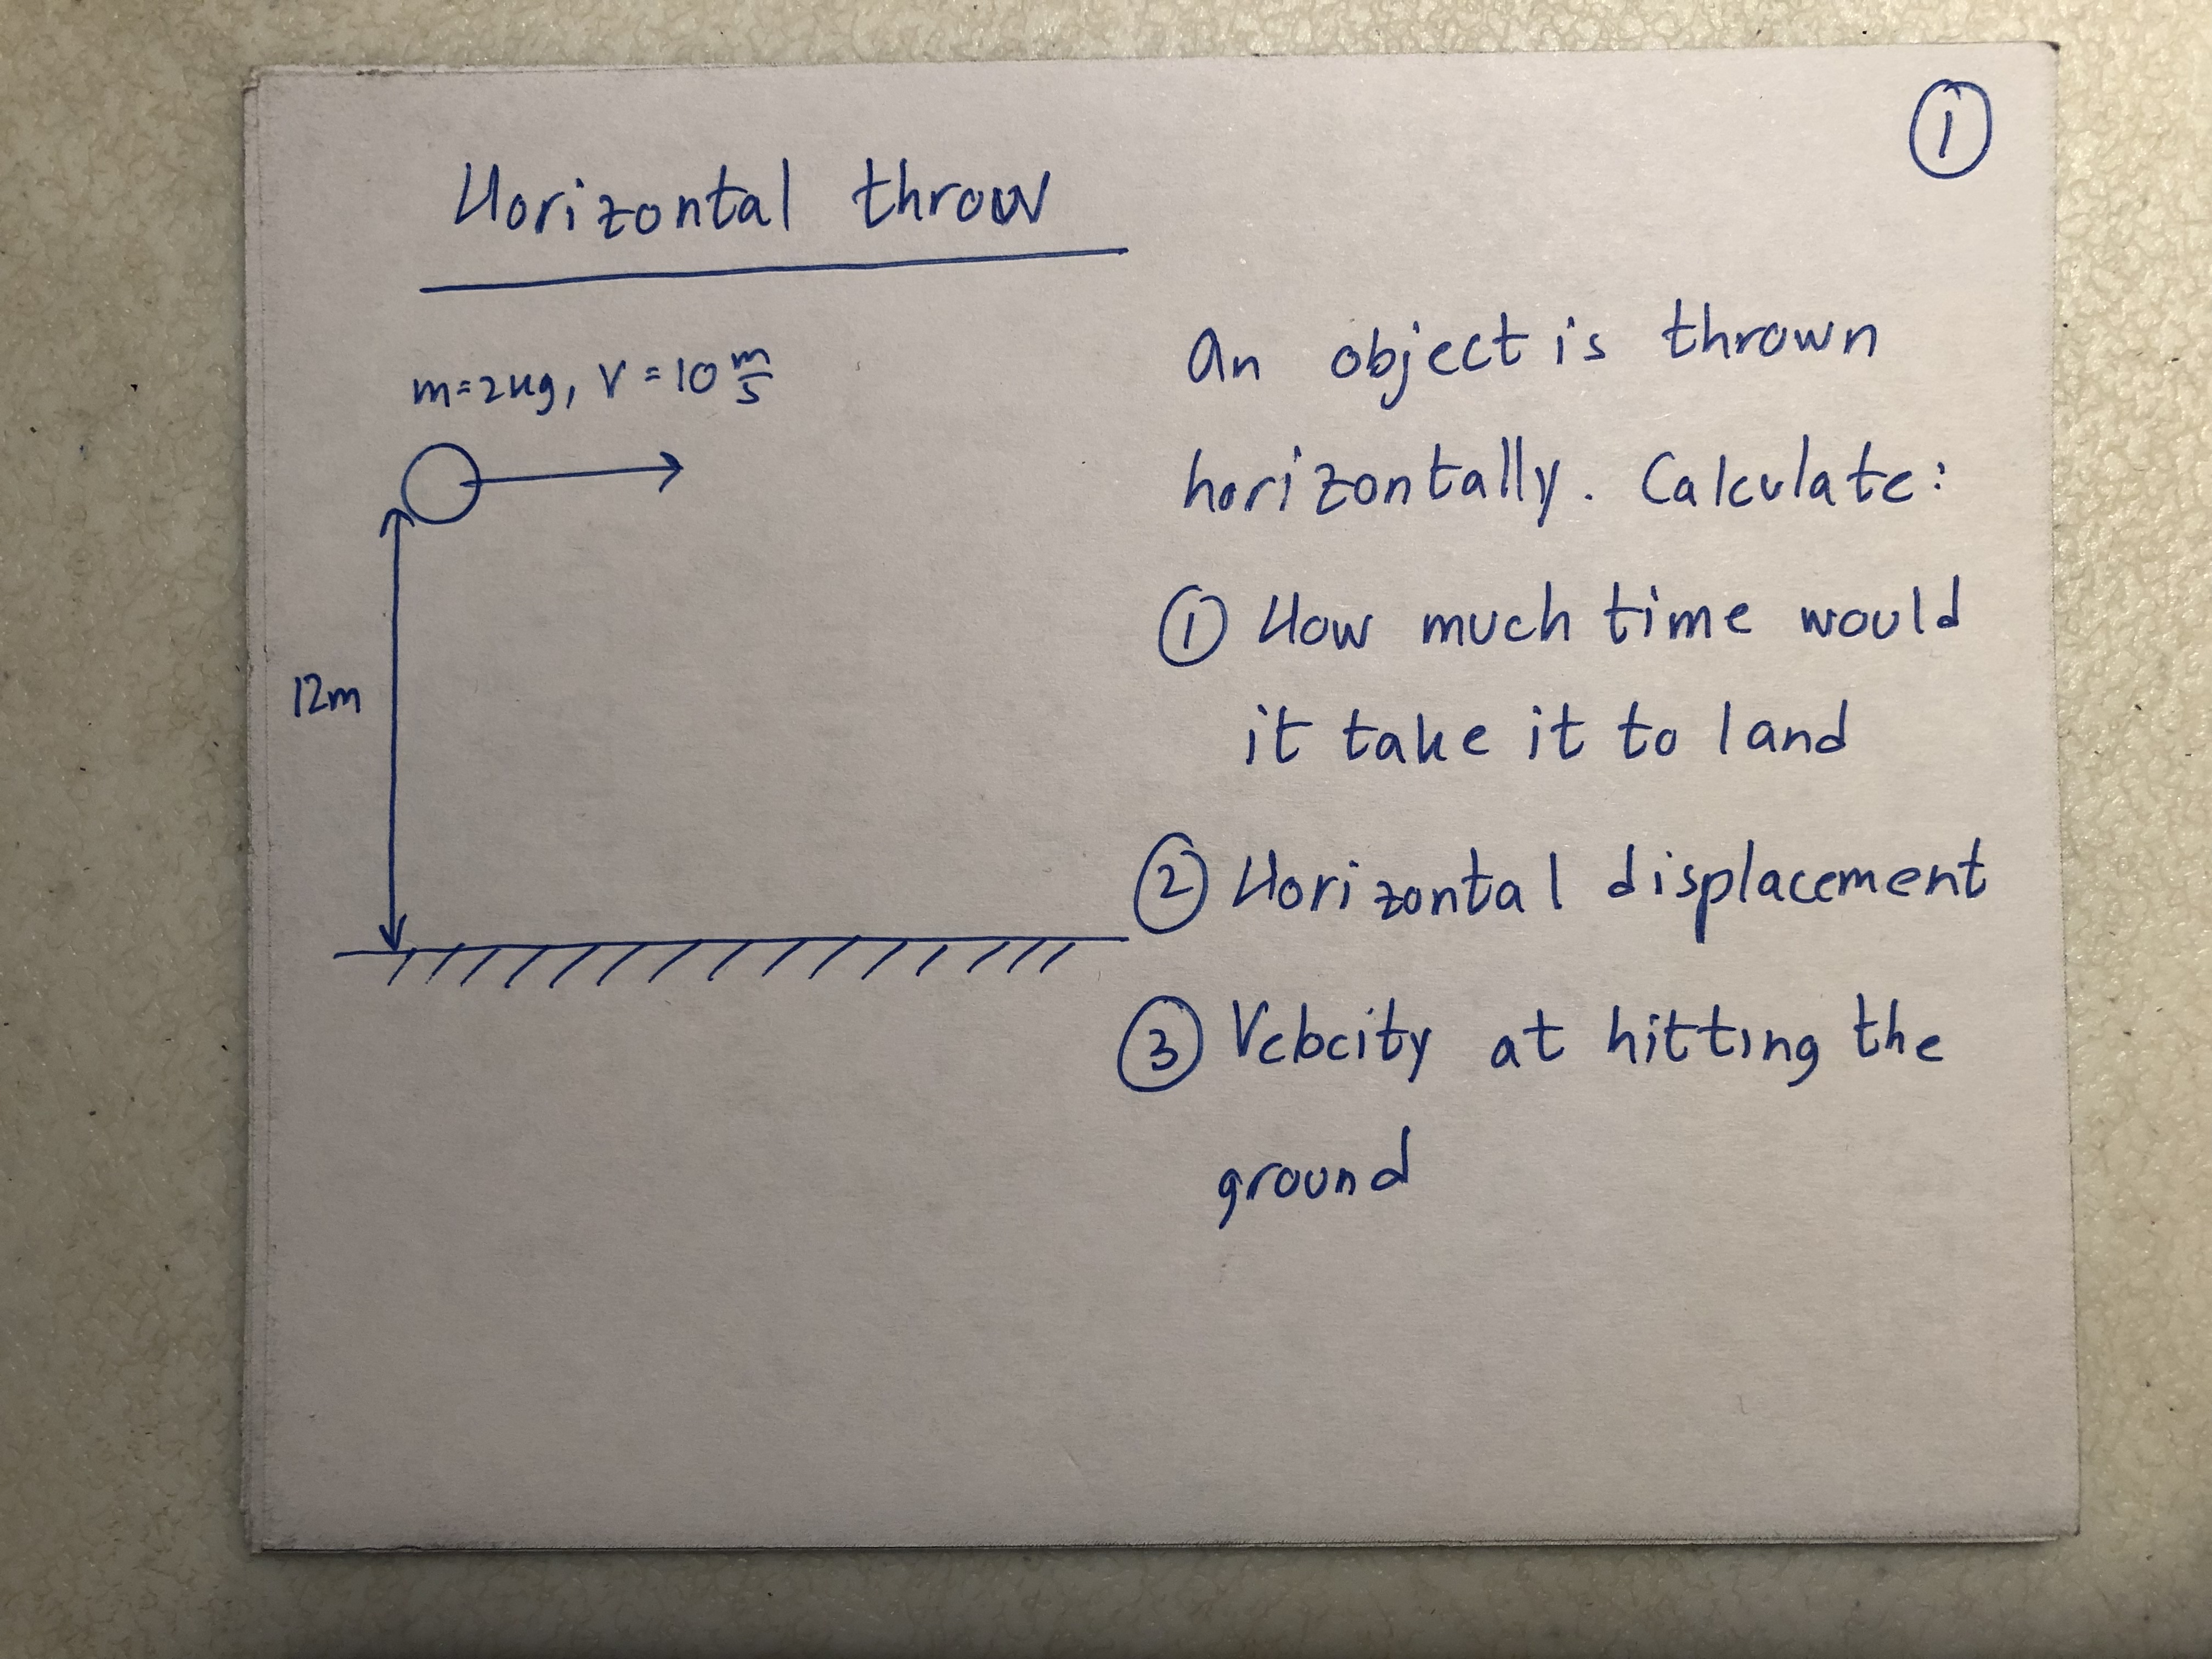 ①
Horizontal throw
m=2kg, V=10 m/s
12m
An object is thrown
horizontally. Calculate:
① How much time would
it take it to land
② Horizontal displacement
③ Velocity at hitting the
ground